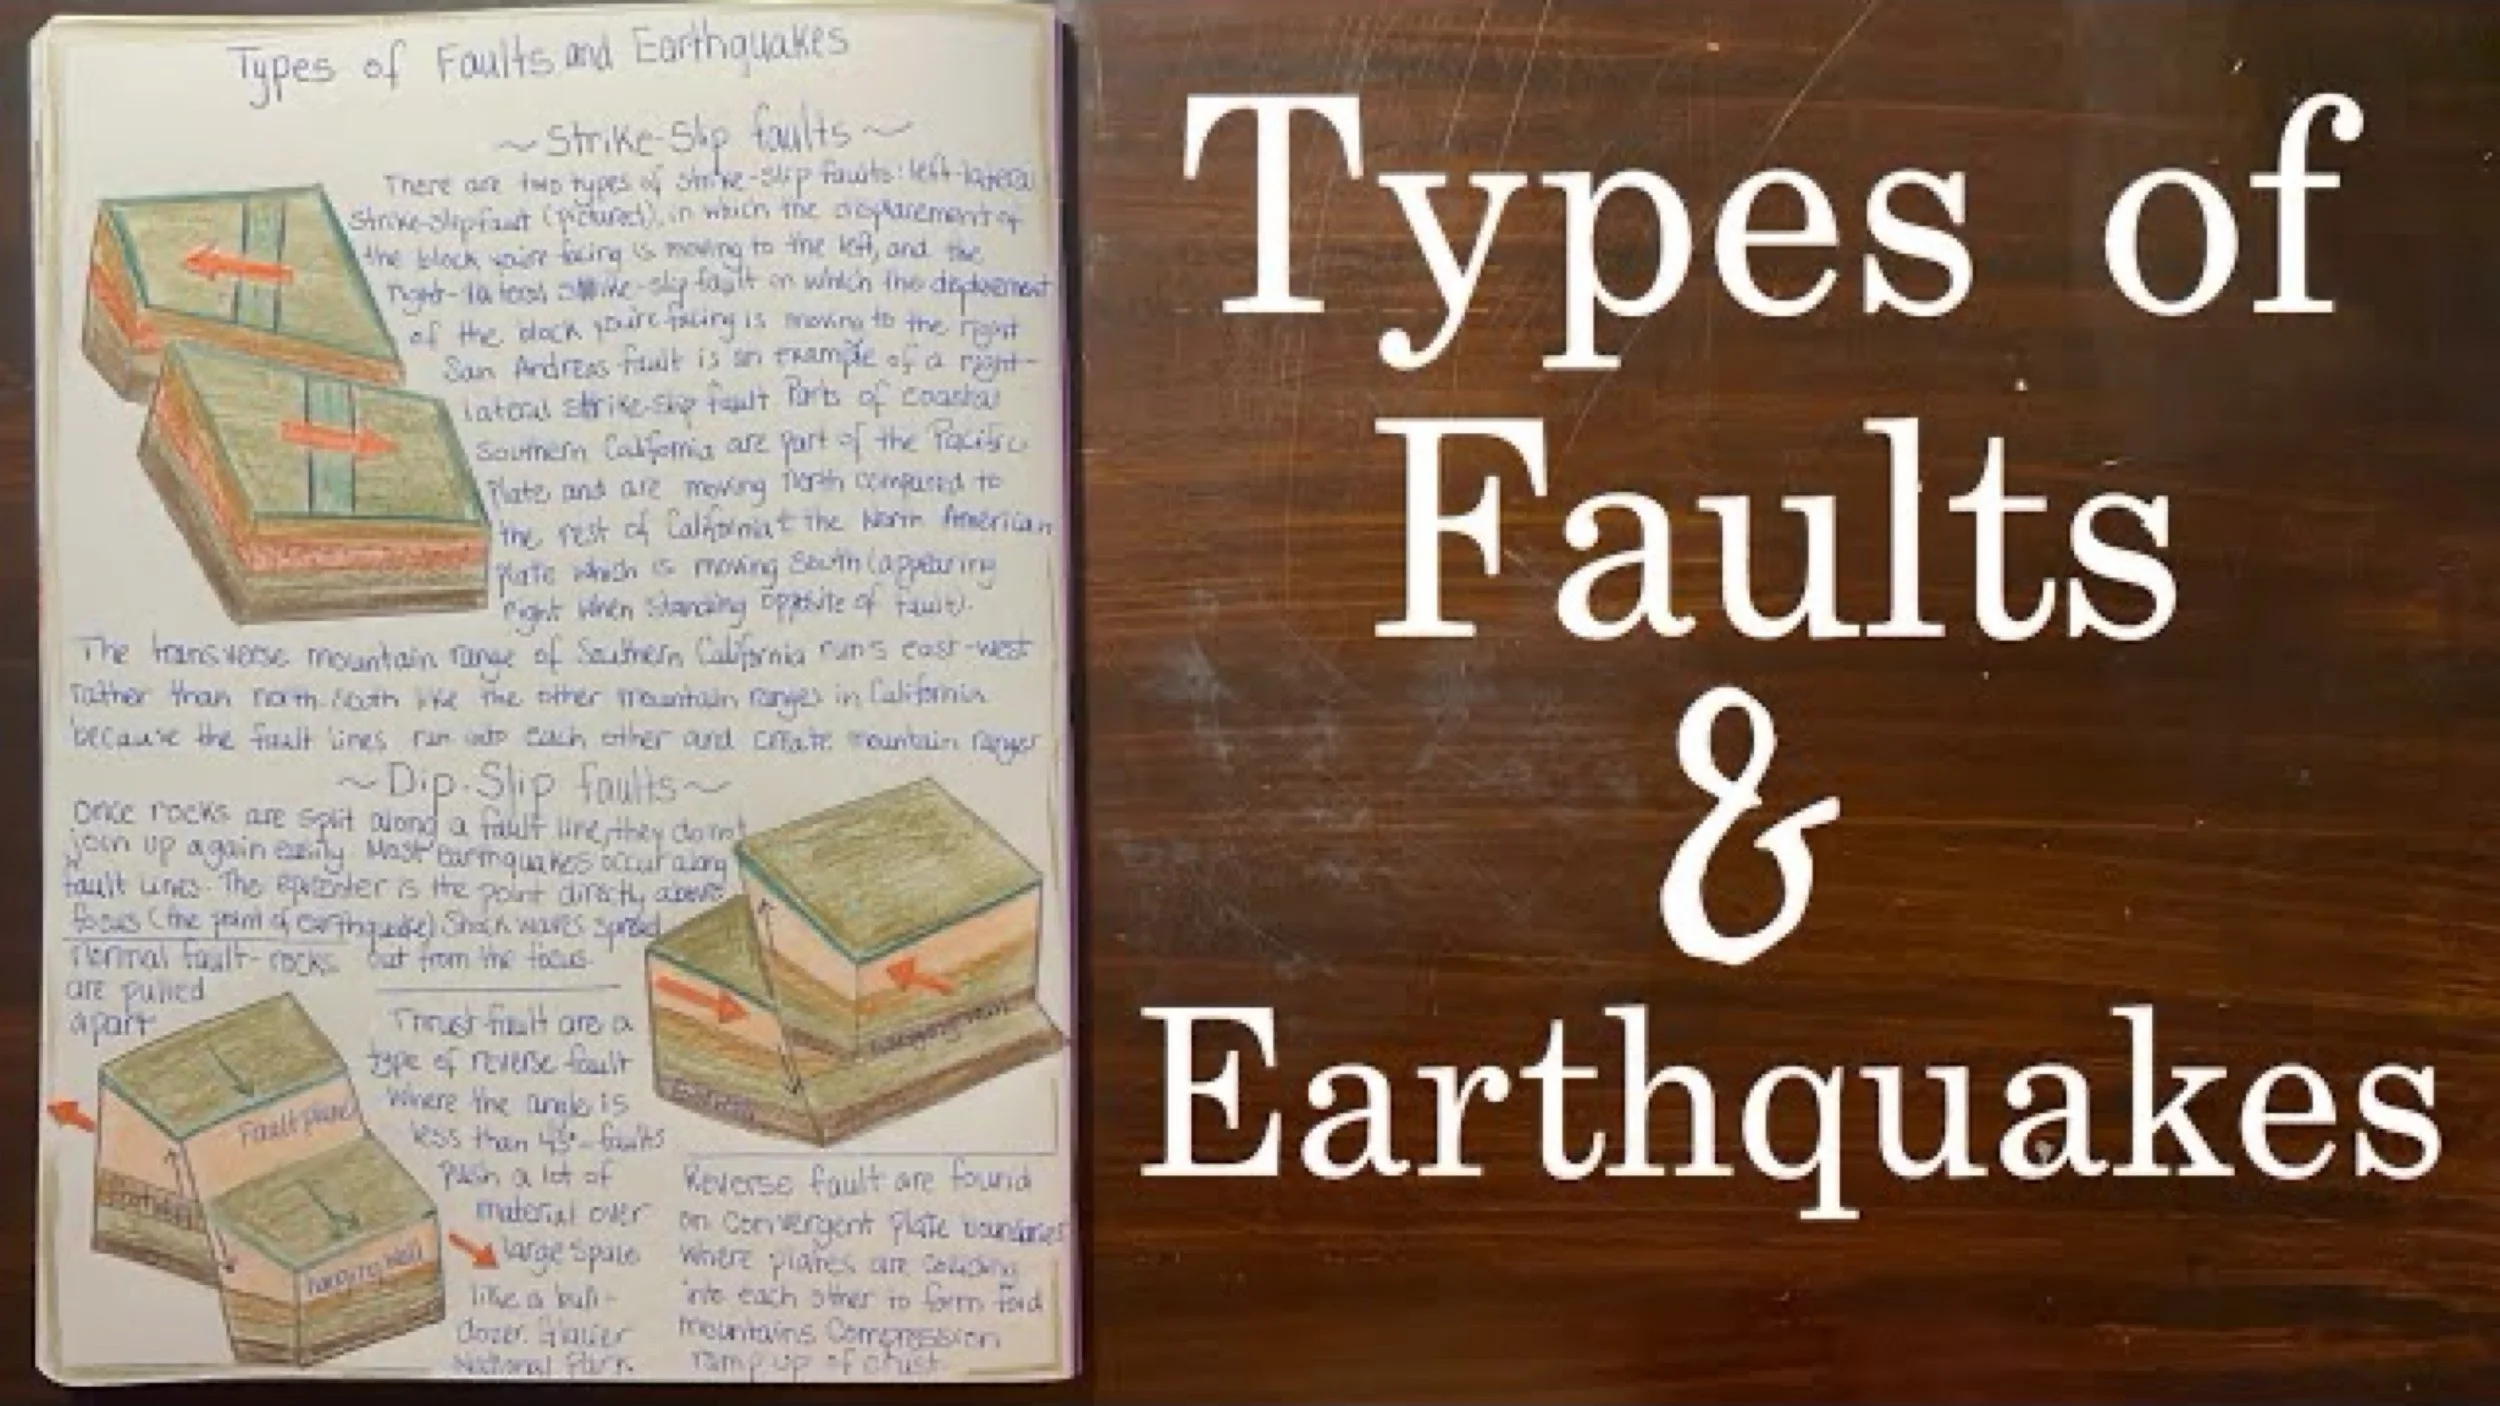 Types of Faults and Earthquakes
~ Strike-Slip faults ~
There are two types of strike-slip faults: left-lateral
strike-slip fault (pictured), in which the displacement of
the block you're facing is moving to the left, and the
right-lateral strike-slip fault in which the displacement
of the block you're facing is moving to the right
San Andreas fault is an example of a right-
lateral strike-slip fault Parts of coastal
Southern California are part of the Pacific
Plate and are moving North compared to
the rest of California & the North American
plate which is moving South (appearing
right when standing opposite of fault).
The transverse mountain range of Southern California runs east-west
rather than north south like the other mountain ranges in California
because the fault lines run into each other and create mountain ranges
~ Dip-Slip faults ~
Once rocks are split along a fault line, they do not
join up again easily. Most earthquakes occur along
fault lines. The epicenter is the point directly above
focus (the point of earthquake) Shock waves spread
out from the focus.
normal fault- rocks
are pulled
apart
Fault plane
footwall
hanging wall
Thrust fault are a
type of reverse fault
where the angle is
less than 45°- faults
push a lot of
material over
large space
like a bull-
dozer. Glacier
National Park
hanging wall
footwall
Reverse fault are found
on convergent plate boundaries
where plates are colliding
into each other to form fold
mountains Compression
ramp up of crust
Types of
Faults
&
Earthquakes